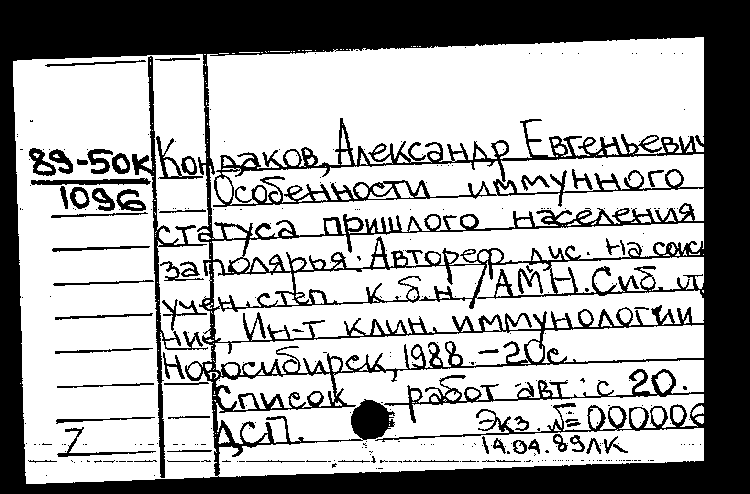 89-50к
1096
Кондаков, Александр Евгеньевич
Особенности иммунного
статуса пришлого населения
заполярья: Автореф. дис. на соиск
учен. степ. к.б.н. / АМН. Сиб. отд
ние, Ин-т клин. иммунологии
Новосибирск, 1988. - 20с.
Список работ авт.: с 20.
ДСП. Экз. № 000006
14.04.89ЛК
7